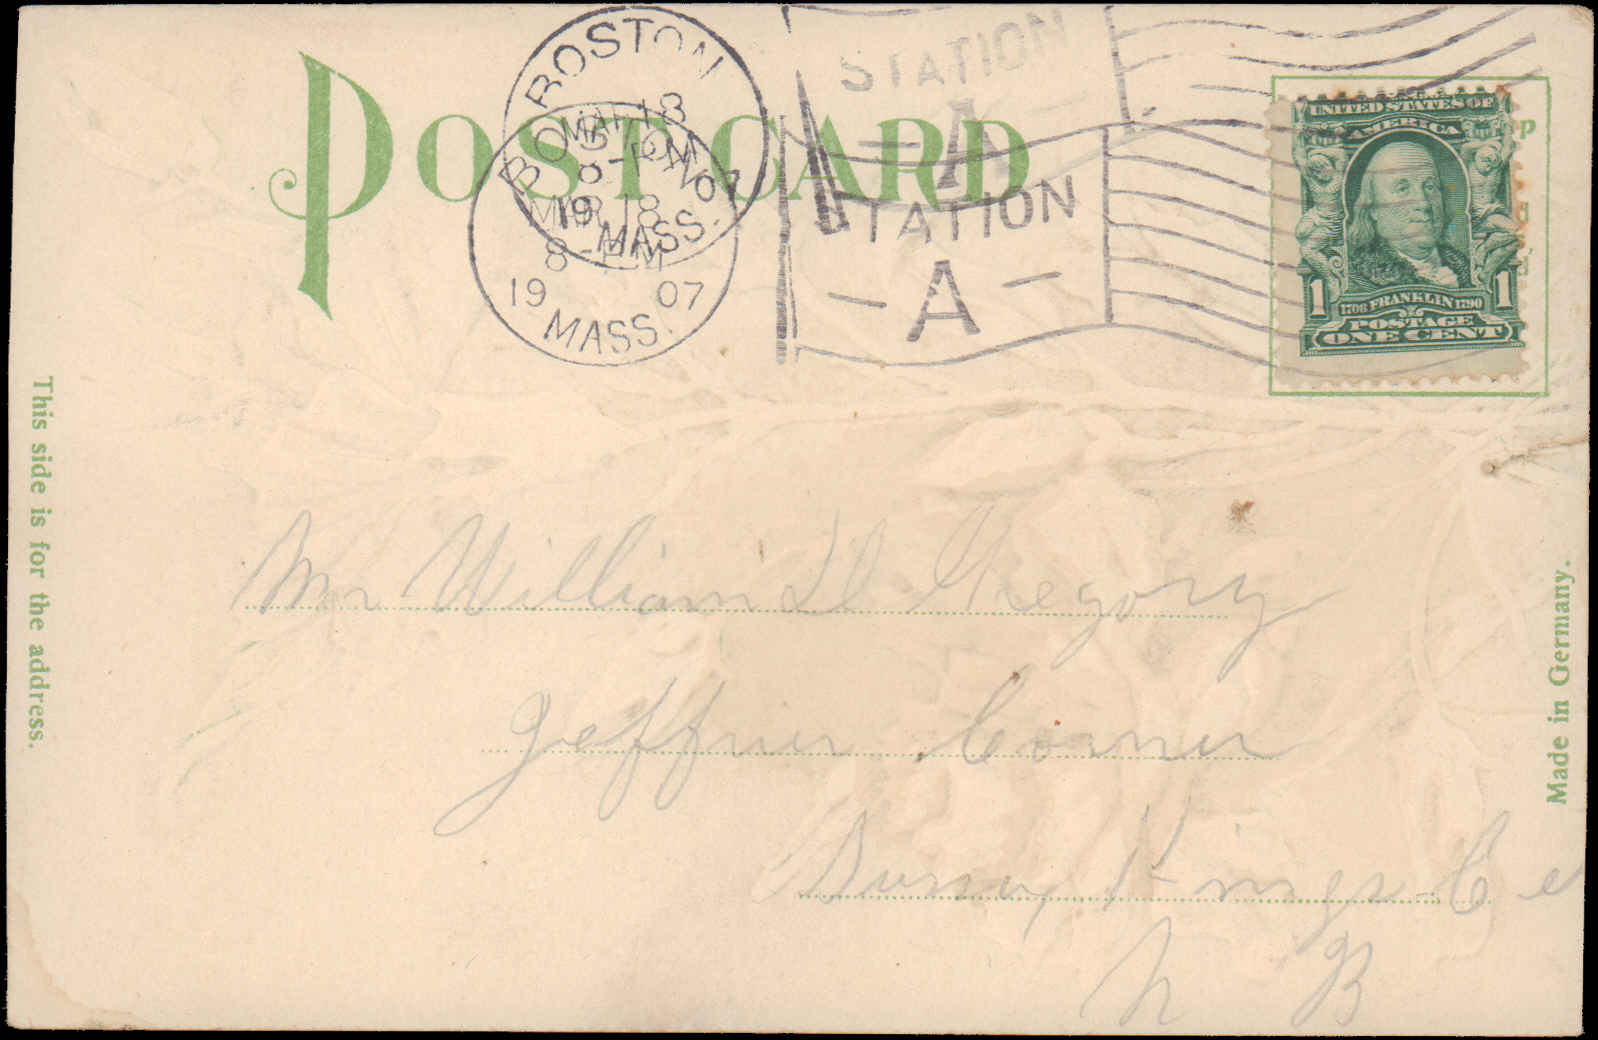 POST CARD
BOSTON
MAR 18
8-PM
19 07
MASS.
STATION
A
BOSTON
MAR 18
8-PM
19 07
MASS.
STATION
- A -
UNITED STATES OF
AMERICA
1 1
1706 FRANKLIN 1790
POSTAGE
ONE CENT
This side is for the address.
Mr William H Gregory
Jeffries Corner
Sussex, Kings Co
N B
Made in Germany.